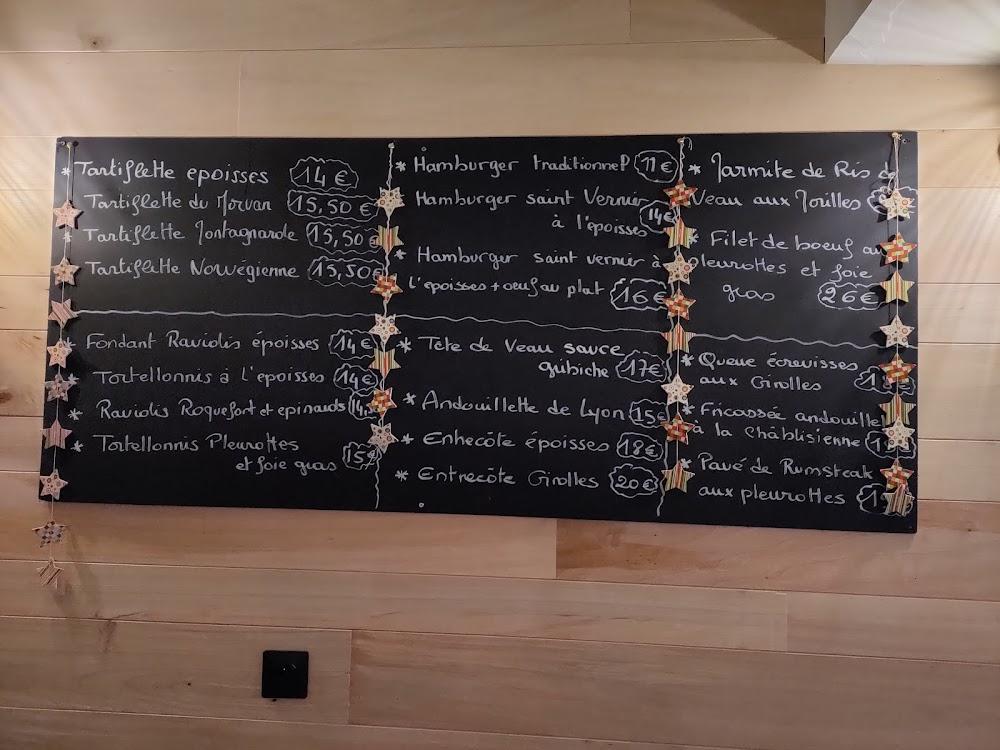 * Tartiflette epoisses 14 €
Tartiflette du Morvan 15,50 €
* Tartiflette Montagnarde 15,50
* Tartiflette Norvégienne 15,50€
* Fondant Raviolis époisses 14 €
* Tortellonnis à l'epoisses 14 €
* Raviolis Roquefort et epinards
* Tortellonnis Pleurottes
et foie gras 15
* Hamburger traditionnel 11 €
Hamburger saint Vernier
à l'epoisses 14€
* Hamburger saint vernier à
l'epoisses + oeuf au plat 16€
* Tête de Veau sauce
gribiche 17€
* Andouillette de Lyon 15€
* Entrecôte époisses 18€
* Entrecôte Girolles 20€
* Marmite de Ris de
Veau aux Morilles
* Filet de boeuf au
pleurottes et foie
gras 26€
* Queue écrevisses
aux Girolles
* Fricassée andouille
à la Châblisienne
* Pavé de Rumsteak
aux pleurottes